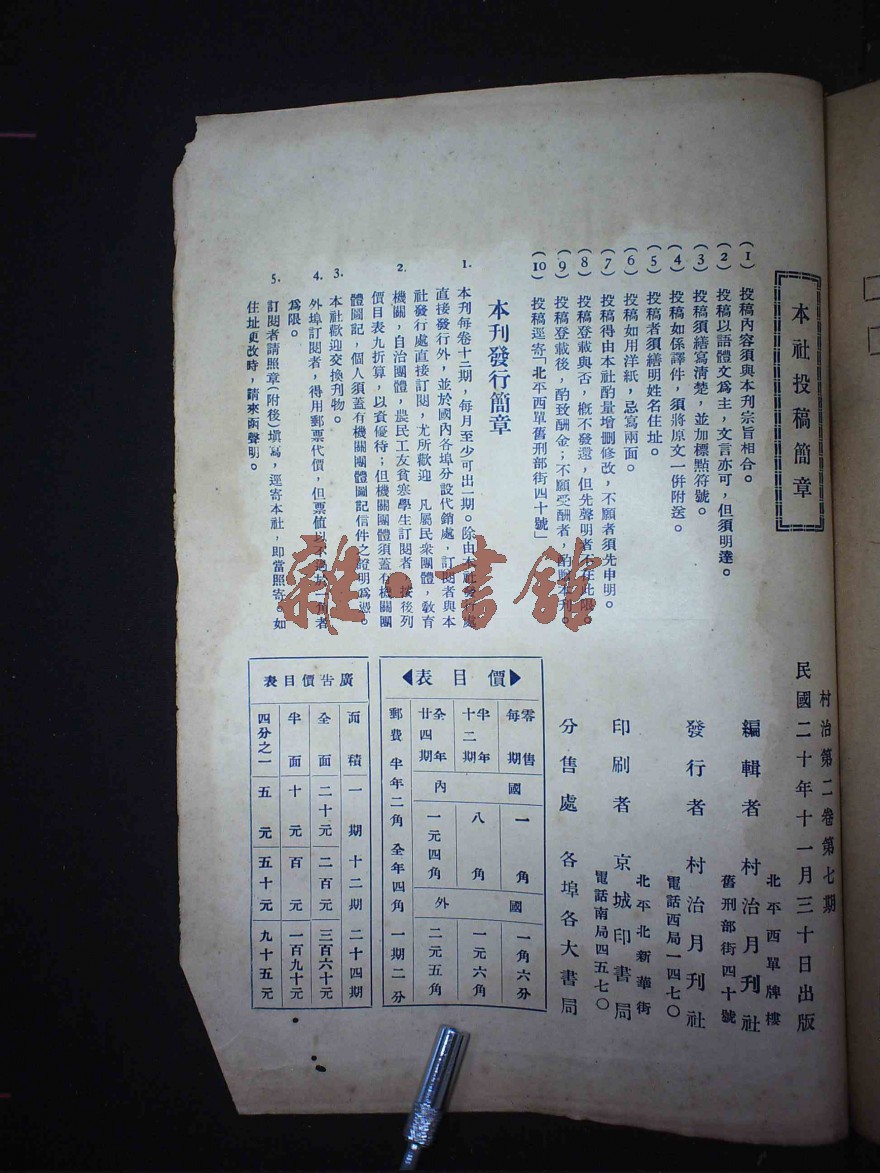 本社投稿簡章
(1) 投稿內容須與本刊宗旨相合。
(2) 投稿以語體文爲主，文言亦可，但須明達。
(3) 投稿須繕寫清楚，並加標點符號。
(4) 投稿如係譯件，須將原文一併附送。
(5) 投稿者須繕明姓名住址。
(6) 投稿如用洋紙，忌寫兩面。
(7) 投稿得由本社酌量增刪修改，不願者須先申明。
(8) 投稿登載與否，概不發還，但先聲明者不在此限。
(9) 投稿登載後，酌致酬金；不願受酬者，酌贈本刊。
(10) 投稿逕寄「北平西單舊刑部街四十號」
本刊發行簡章
1. 本刊每卷十二期，每月至少可出一期。除由本社發行處
直接發行外，並於國內各埠分設代銷處，訂閱者與本
社發行處直接訂閱，尤所歡迎 凡屬民衆團體，敎育
2. 機關，自治團體，農民工友貧寒學生訂閱者 按後列
價目表九折算，以資優待；但機關團體須蓋有機關團
體圖記，個人須蓋有機關團體圖記信件之證明爲憑。
3. 本社歡迎交換刊物。
4. 外埠訂閱者，得用郵票代價，但票值以不 者
爲限。
5. 訂閱者請照章(附後)塡寫，逕寄本社，即當照寄。如
住址更改時，請來函聲明。
村治第二卷第七期
民國二十年十一月三十日出版
編輯者 村治月刊社
北平西單牌樓
舊刑部街四十號
發行者 村治月刊社
電話西局一四七〇
印刷者 京城印書局
北平北新華街
電話南局四五七〇
分售處 各埠各大書局
價目表
零售每期 國內 一角 國外 一角六分
半年十二期 八角 一元六角
全年廿四期 一元四角 二元五角
郵費 半年二角 全年四角 一期二分
廣告價目表
面積 一期 十二期 二十四期
全面 二十元 二百元 三百六十元
半面 十元 百元 一百九十元
四分之一 五元 五十元 九十五元
雜·書館